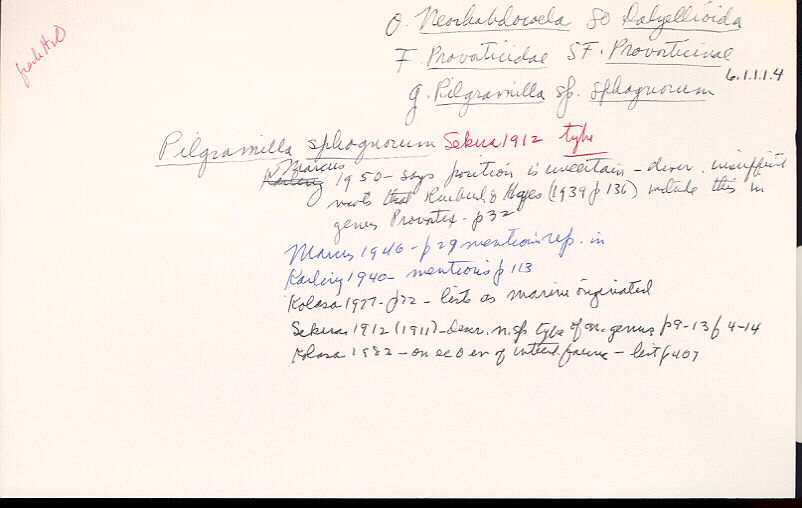 fresh H2O
O. Neorhabdocoela SO Dalyellioida
F. Provorticidae SF. Provorticinae
6.1.1.1.4
g. Pilgramilla sp. sphagnorum
Pilgramilla sphagnorum Sekera 1912 type
Marcus
Karling 1950 - says position is uncertain - descr. insufficient
nests that Ruebush & Hayes (1939 p 136) include this in
genus Provortex - p 32
Marcus 1946 - p 29 mentions rep. in
Karling 1940 - mentions p 113
Kolasa 1977 - p 22 - lists as marine originated
Sekera 1912 (1911) - descr. n. sp type of n. genus p 9-13 f 4-14
Kolasa 1982 - on ec of fauna - list p 407